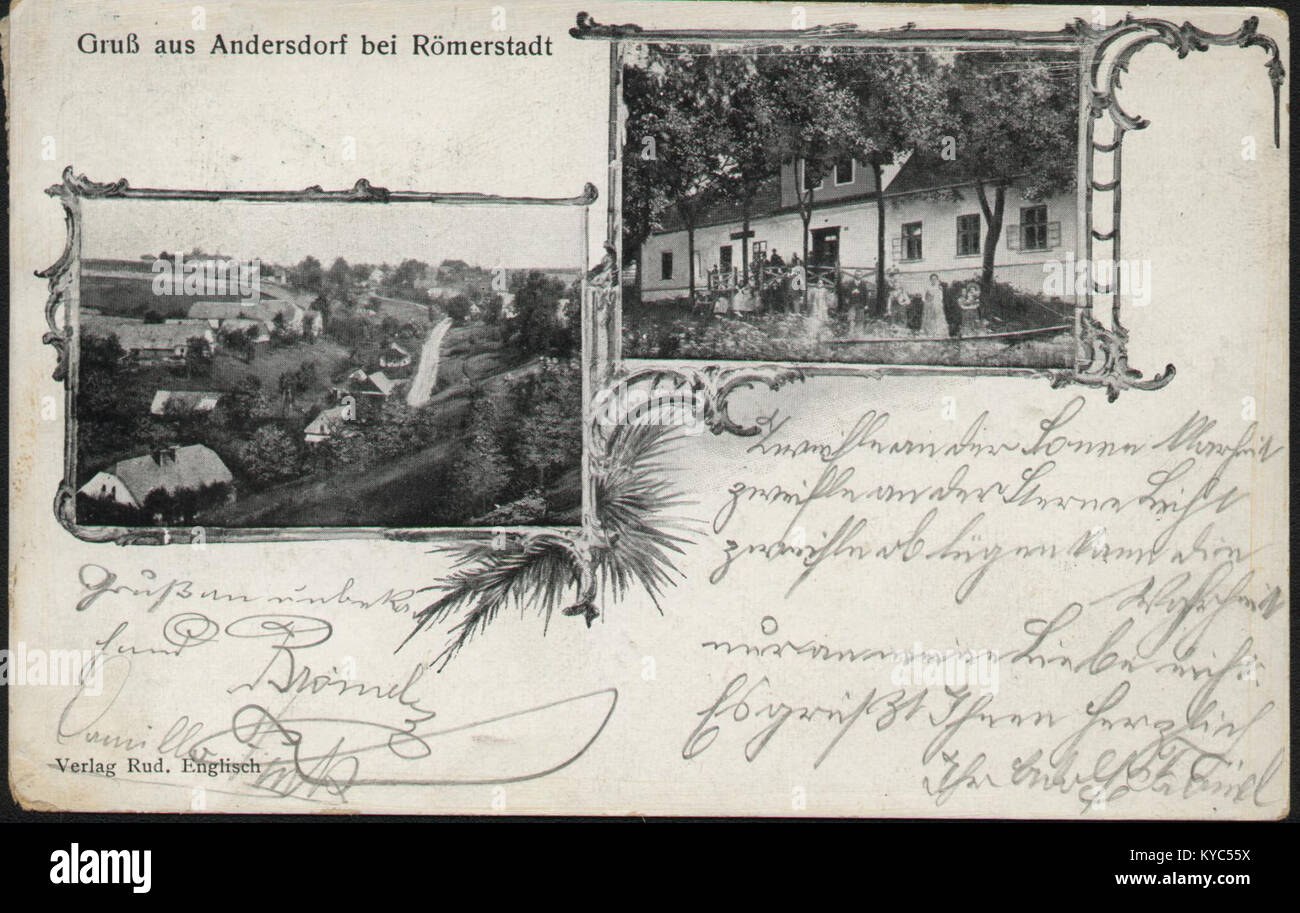 Gruß aus Andersdorf bei Römerstadt
Zweifle an der Sonne Klarheit
zweifle an der Sterne Licht
zweifle ob lügen kann die
Wahrheit
nur an meine Liebe nicht.
Es grüßt Ihnen Herzlich
Ihr
Gruß an unbekan
Camillo
Verlag Rud. Englisch
alamy
Image ID: KYC55X
www.alamy.com